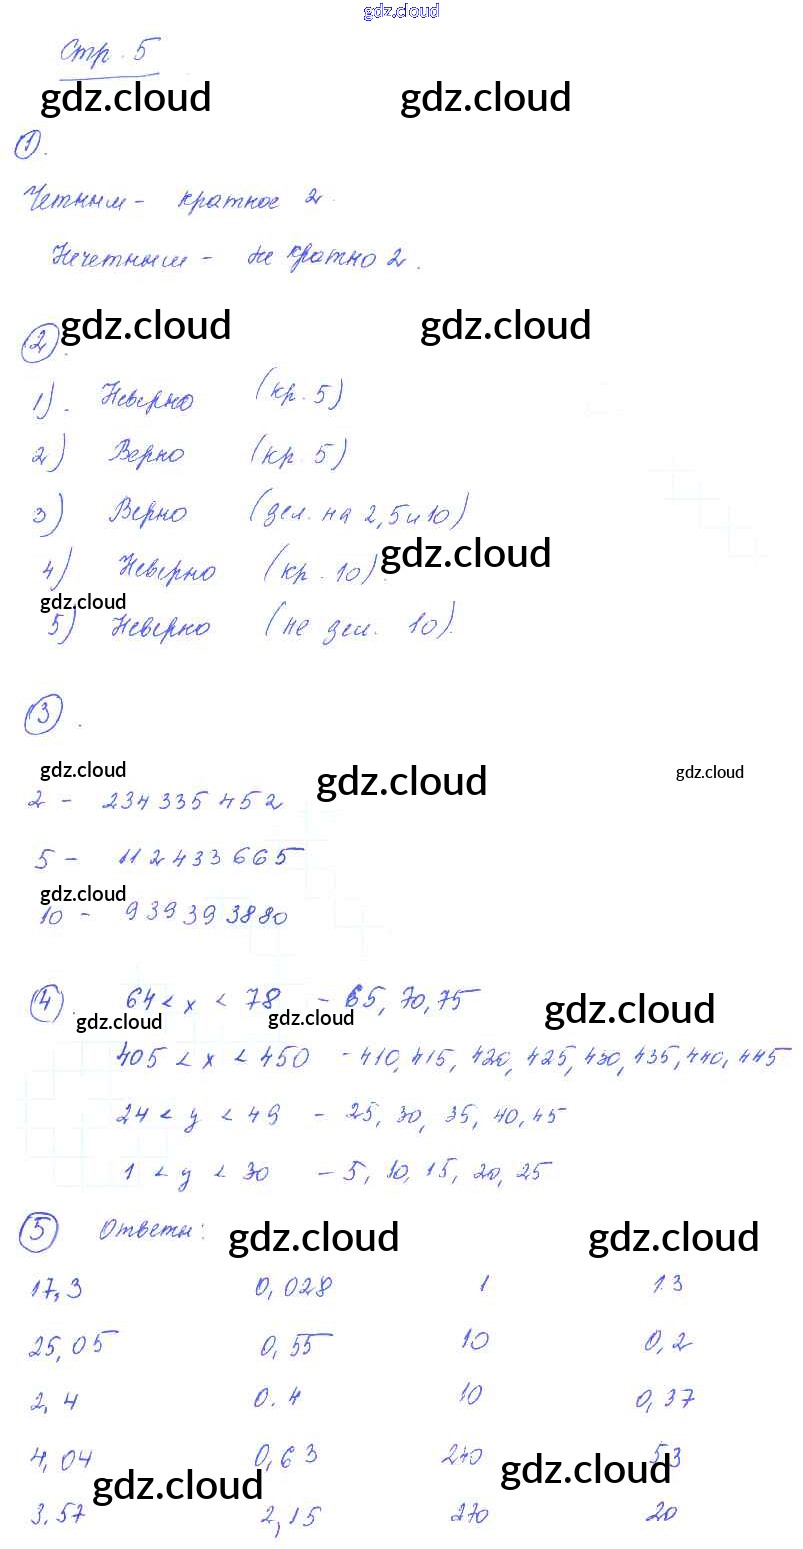 gdz.cloud
Стр. 5
gdz.cloud gdz.cloud
1.
Четным - кратное 2.
Нечетным - не кратно 2.
gdz.cloud gdz.cloud
2.
1). Неверно (кр. 5)
2) Верно (кр. 5)
3) Верно (дел. на 2,5 и 10)
gdz.cloud
4) Неверно (кр. 10).
gdz.cloud
5) Неверно (не дел. 10).
3.
gdz.cloud gdz.cloud gdz.cloud
2 - 234 335 452
5 - 112 433 665
gdz.cloud
10 - 939 393 880
4. 64 < x < 78 - 65, 70, 75
gdz.cloud gdz.cloud gdz.cloud
405 < x < 450 - 410, 415, 420, 425, 430, 435, 440, 445
24 < y < 49 - 25, 30, 35, 40, 45
1 < y < 30 - 5, 10, 15, 20, 25
5 Ответы:
gdz.cloud gdz.cloud
17,3 0,028 1 13
25,05 0,55 10 0,2
2,4 0.4 10 0,37
4,04 0,63 240 53
gdz.cloud gdz.cloud
3.57 2,15 270 20